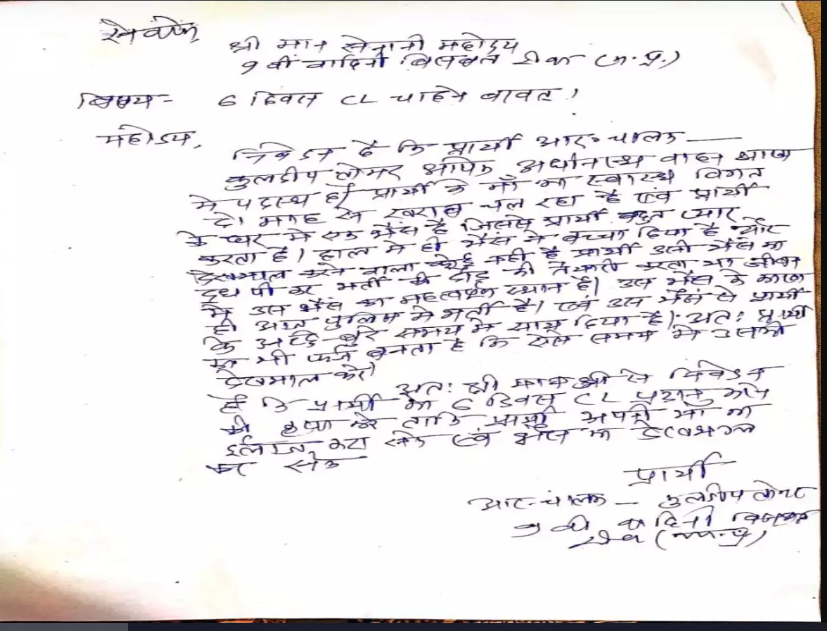 सेवामें
श्री मान सेनानी महोदय
9 वी वाहिनी विसबल रीवा (म.प्र.)
विषय- 6 दिवस CL चाहने बावत।
महोदय,
निवेदन है कि प्रार्थी आर. चालक
कुलदीप तोमर आपके अधीनस्थ वाहन शाखा
मे पदस्थ है। प्रार्थी के माँ का स्वास्थ विगत
दो माह से खराब चल रहा है एवं प्रार्थी
के घर मे एक भैंस है जिससे प्रार्थी बहुत प्यार
करता है। हाल मे ही भैंस ने बच्चा दिया है और
देखभाल करने वाला कोई नही है प्रार्थी उसी भैंस का
दूध पी कर भर्ती की दौड़ की तैयारी करता था जीवन
मे उस भैंस का महत्वपूर्ण स्थान है। उस भैंस के कारण
ही आज पुलिस मे भर्ती है। एवं उस भैंस ने प्रार्थी
के अच्छे बुरे समय मे साथ दिया है। अतः प्रार्थी
का भी फर्ज बनता है कि ऐसे समय मे उसकी
देखभाल करे।
अतः श्री मान जी से निवेदन
है कि प्रार्थी को 6 दिवस CL प्रदान करने
की कृपा करे ताकि प्रार्थी अपनी माँ का
ईलाज करा सके एवं भैंस की देखभाल
कर सके
प्रार्थी
आर. चालक - कुलदीप तोमर
9 वी वाहिनी विसबल
रीवा (म.प्र)